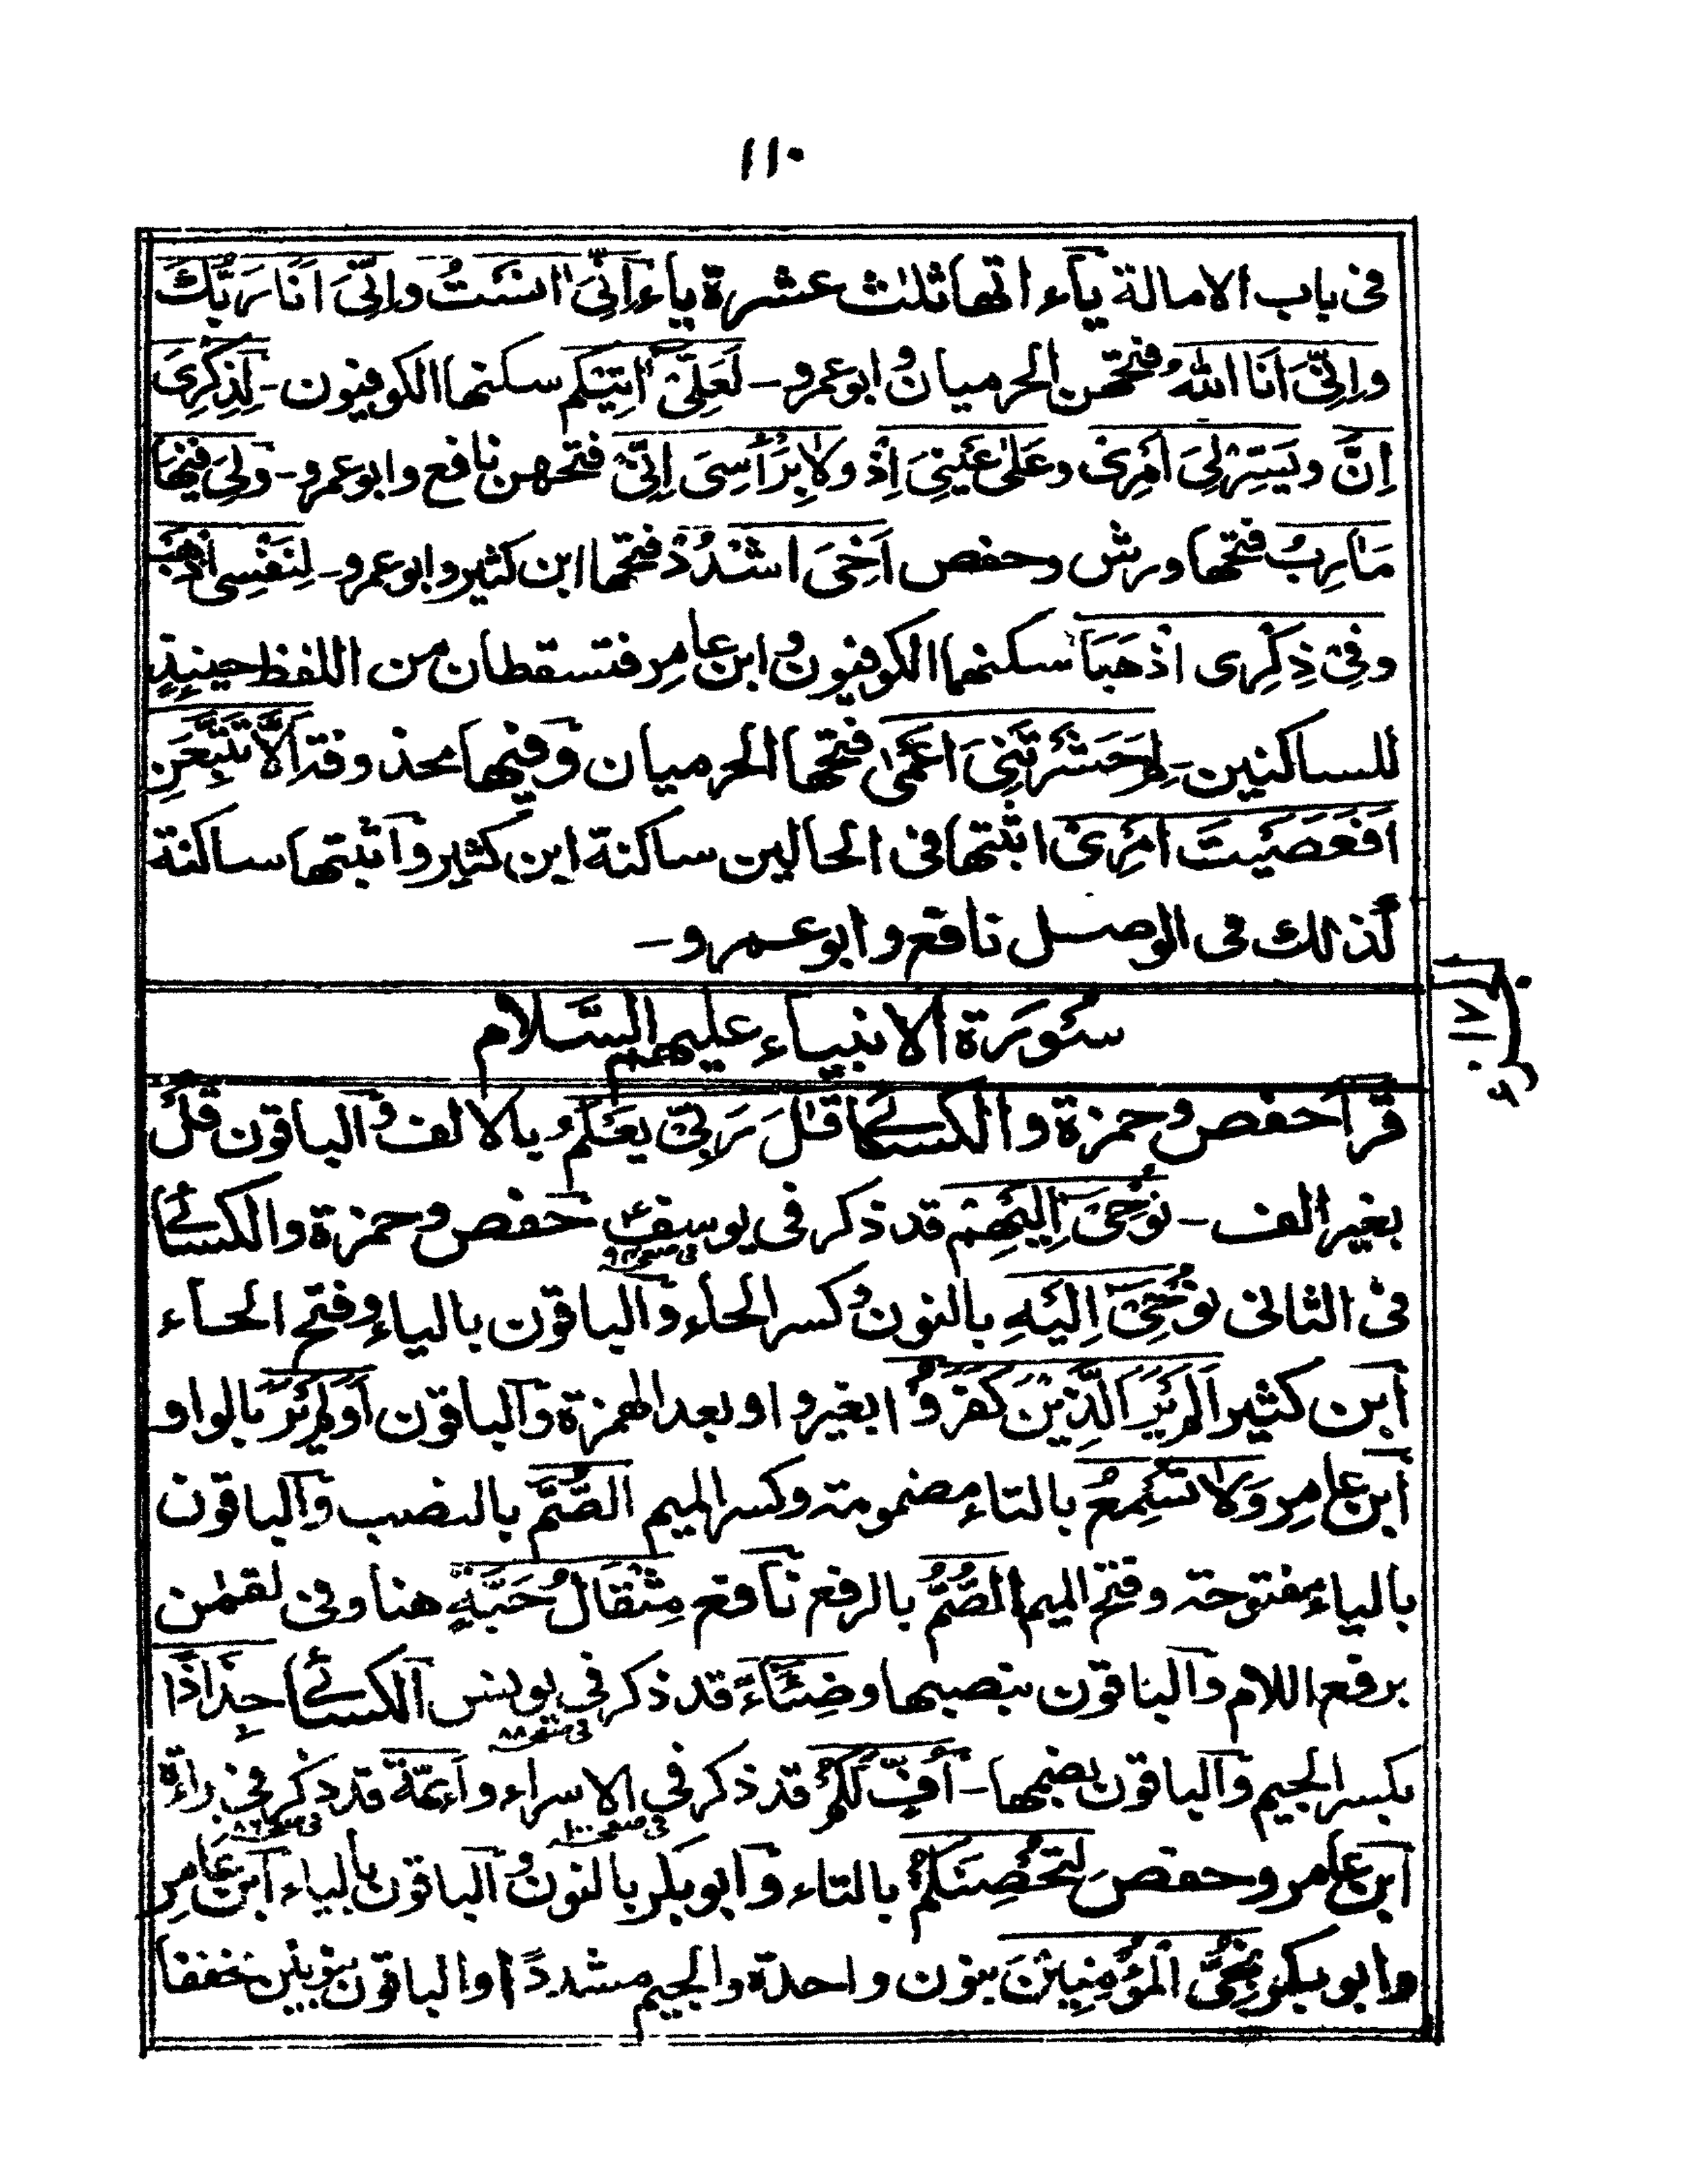 ١١٠
فی باب الامالة یآء اتها ثلٰث عشرة یاء اِنِّیَ اٰنَسْتُ واِنِّیَ اَنَا رَبُّكَ
واِنَّنِیَ اَنَا اللهُ فتحهن الحرمیان وابوعمرو۔ لَعَلِّیْ اٰتِیْكم سكنها الكوفیون۔ لِذِكْرِیَ
اِنَّ ویَسِّرْ لِیَ اَمْرِیْ وعَلٰی عَیْنِیَ اِذْ ولَا بِرَاْسِیَ اِنِّیْ فتحهن نافع وابوعمرو۔ ولِیَ فِیْهَا
مَاٰرِبُ فتحها ورش وحفص اَخِیَ اشْدُدْ فتحها ابن كثیر وابوعمرو۔ لِنَفْسِی اذْهَبْ
وفِیْ ذِكْرِی اذْهَبَا سكنهما الكوفیون وابن عامِر فتسقطان من اللفظ حینئِذٍ
للساكنین۔ لِمَ حَشَرْتَنِیَ اَعْمٰی فتحها الحرمیان وفیها محذوفة اَلَّا تَتَّبِعَنِ
اَفَعَصَیْتَ اَمْرِیْ اثبتها فی الحالین ساكنة ابن كثیر واثبتها ساكنة
كذلك فی الوصل نافع وابوعمرو۔
سُوْرَة الانبیاء علیهم السَّلام
قرأ حفص وحمزة والكسائے قٰلَ رَبِّیْ یَعْلَمُ بالالف والباقون قُلْ
بغیر الف۔ نُوْحِیْ اِلَیْهِمْ قد ذكر فی یوسف حفص وحمزة والكسائے
فی صفحہ ٩٣
فی الثانی نُوْحِیْ اِلَیْهِ بالنون وكسر الحاء والباقون بالیاء وفتح الحاء
ابن كثیر اَلَمْ یَرَ الَّذِیْنَ كَفَرُوْا بغیر واو بعد الهمزة والباقون اَوَلَمْ یَرَ بالواو
ابن عامِر وَلَا تُسْمِعُ بالتاء مضمومتہ وكسر المیم الصُّمَّ بالنصب والباقون
بالیاء مفتوحتہ وفتح المیم الصُّمُّ بالرفع نافع مِثْقَالُ حَبَّةٍ هنا وفی لقمٰن
برفع اللام والباقون بنصبها وضِیَٓاءً قد ذكر فی یونس الكسائے جِذَاذًا
فی صفحہ ٨٨
بكسر الجیم والباقون بضمها۔ اُفٍّ لَّكُمْ قد ذكر فی الاسراء واَئِمَّةً قد ذكر فی براءة
فی صفحہ ١٠٠
فی صفحہ ٨٦
ابن عامر وحفص لِتُحْصِنَكُمْ بالتاء وابوبكر بالنون والباقون بالیاء ابن عامِر
وابوبكر نُجِّی الْمُؤْمِنِیْنَ بنون واحدة والجیم مشددًا والباقون بنونین مخففا